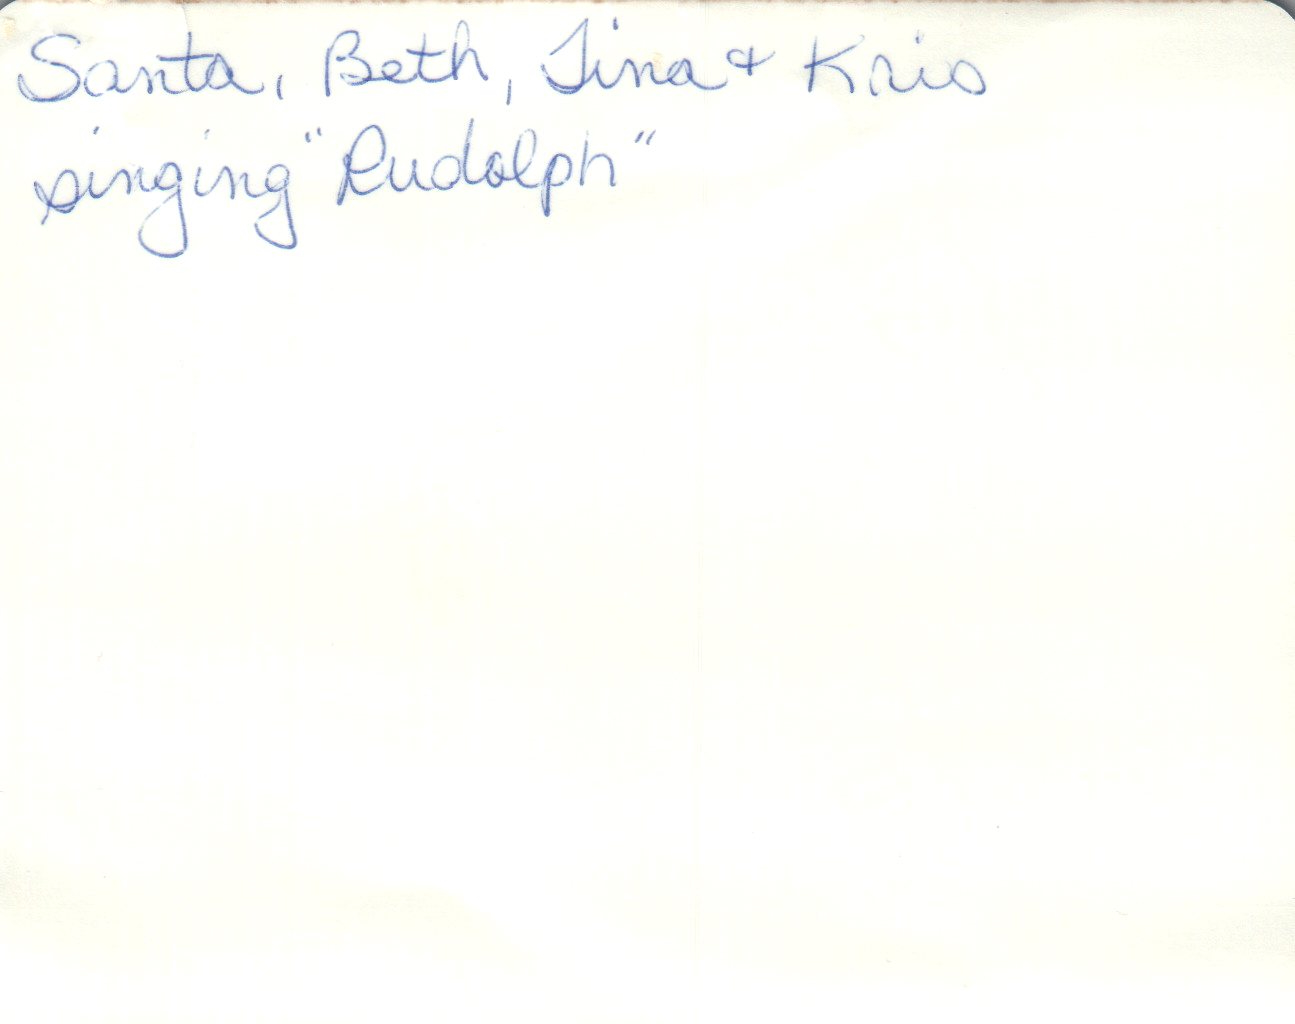 Santa, Beth, Tina + Kris
singing "Rudolph"